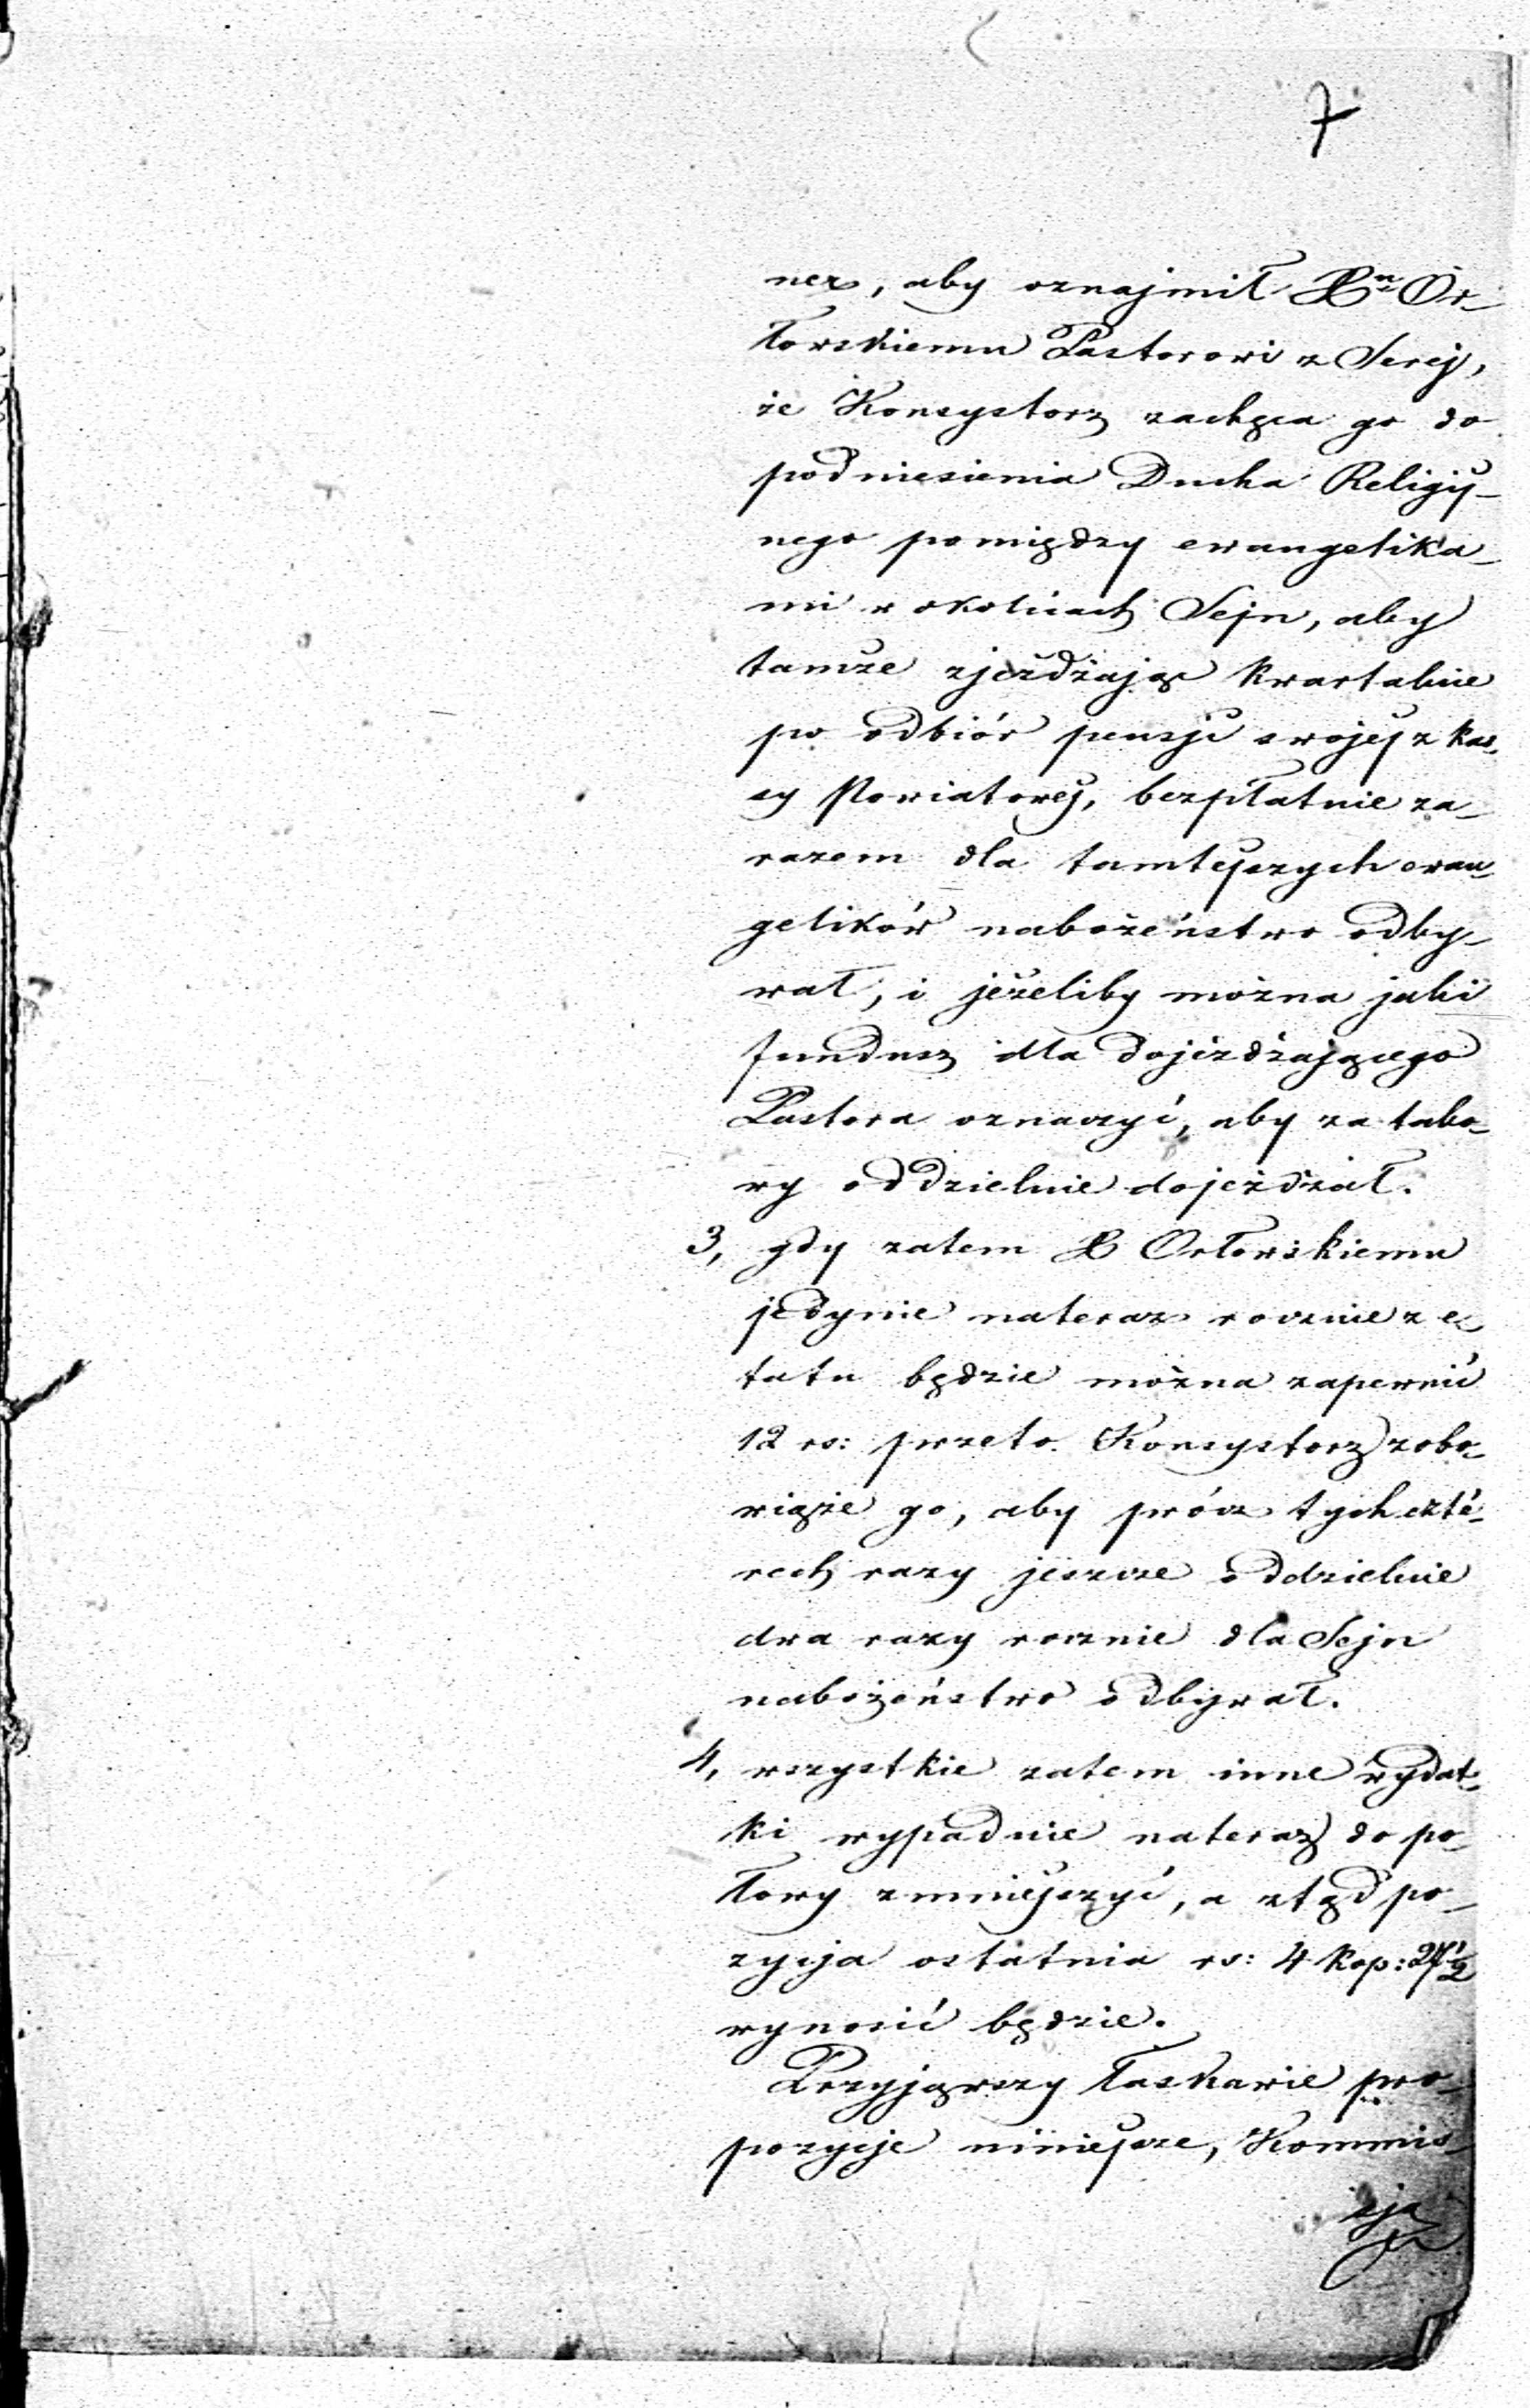 7
ner, aby oznajmił X<sup>n</sup> Or-
łowskiemu Pastorowi z Serej,
że Konsystorz zachęca go do
podniesienia Ducha Religij-
nego pomiędzy ewangelika-
mi w okolicach Sejn, aby
tamże zjeżdżając kwartalnie
po odbiór pensji swojej z kas-
sy Powiatowej, bezpłatnie za-
razem dla tamtejszych ewan-
gelików nabożeństwo odby-
wał, i jeżeliby można jaki
fundusz dla dojeżdżającego
Pastora oznaczyć, aby za tako-
wy oddzielnie dojeżdżał.
3, gdy zatem X Orłowskiemu
jedynie nateraz rocznie z e-
tatu będzie można zapewnić
12 rs: przeto Konsystorz zobo-
wiąże go, aby prócz tych czté-
rech razy jeszcze oddzielnie
dwa razy rocznie dla Sejn
nabożeństwo odbywał.
4, wszystkie zatem inne wydat-
ki wypadnie nateraz do po-
łowy zmniejszyć, a ztąd po-
zycja ostatnia rs: 4 kop: 27½
wynosić będzie.
Przyjąwszy łaskawie pro-
pozycje niniejsze, Kommis-
sja